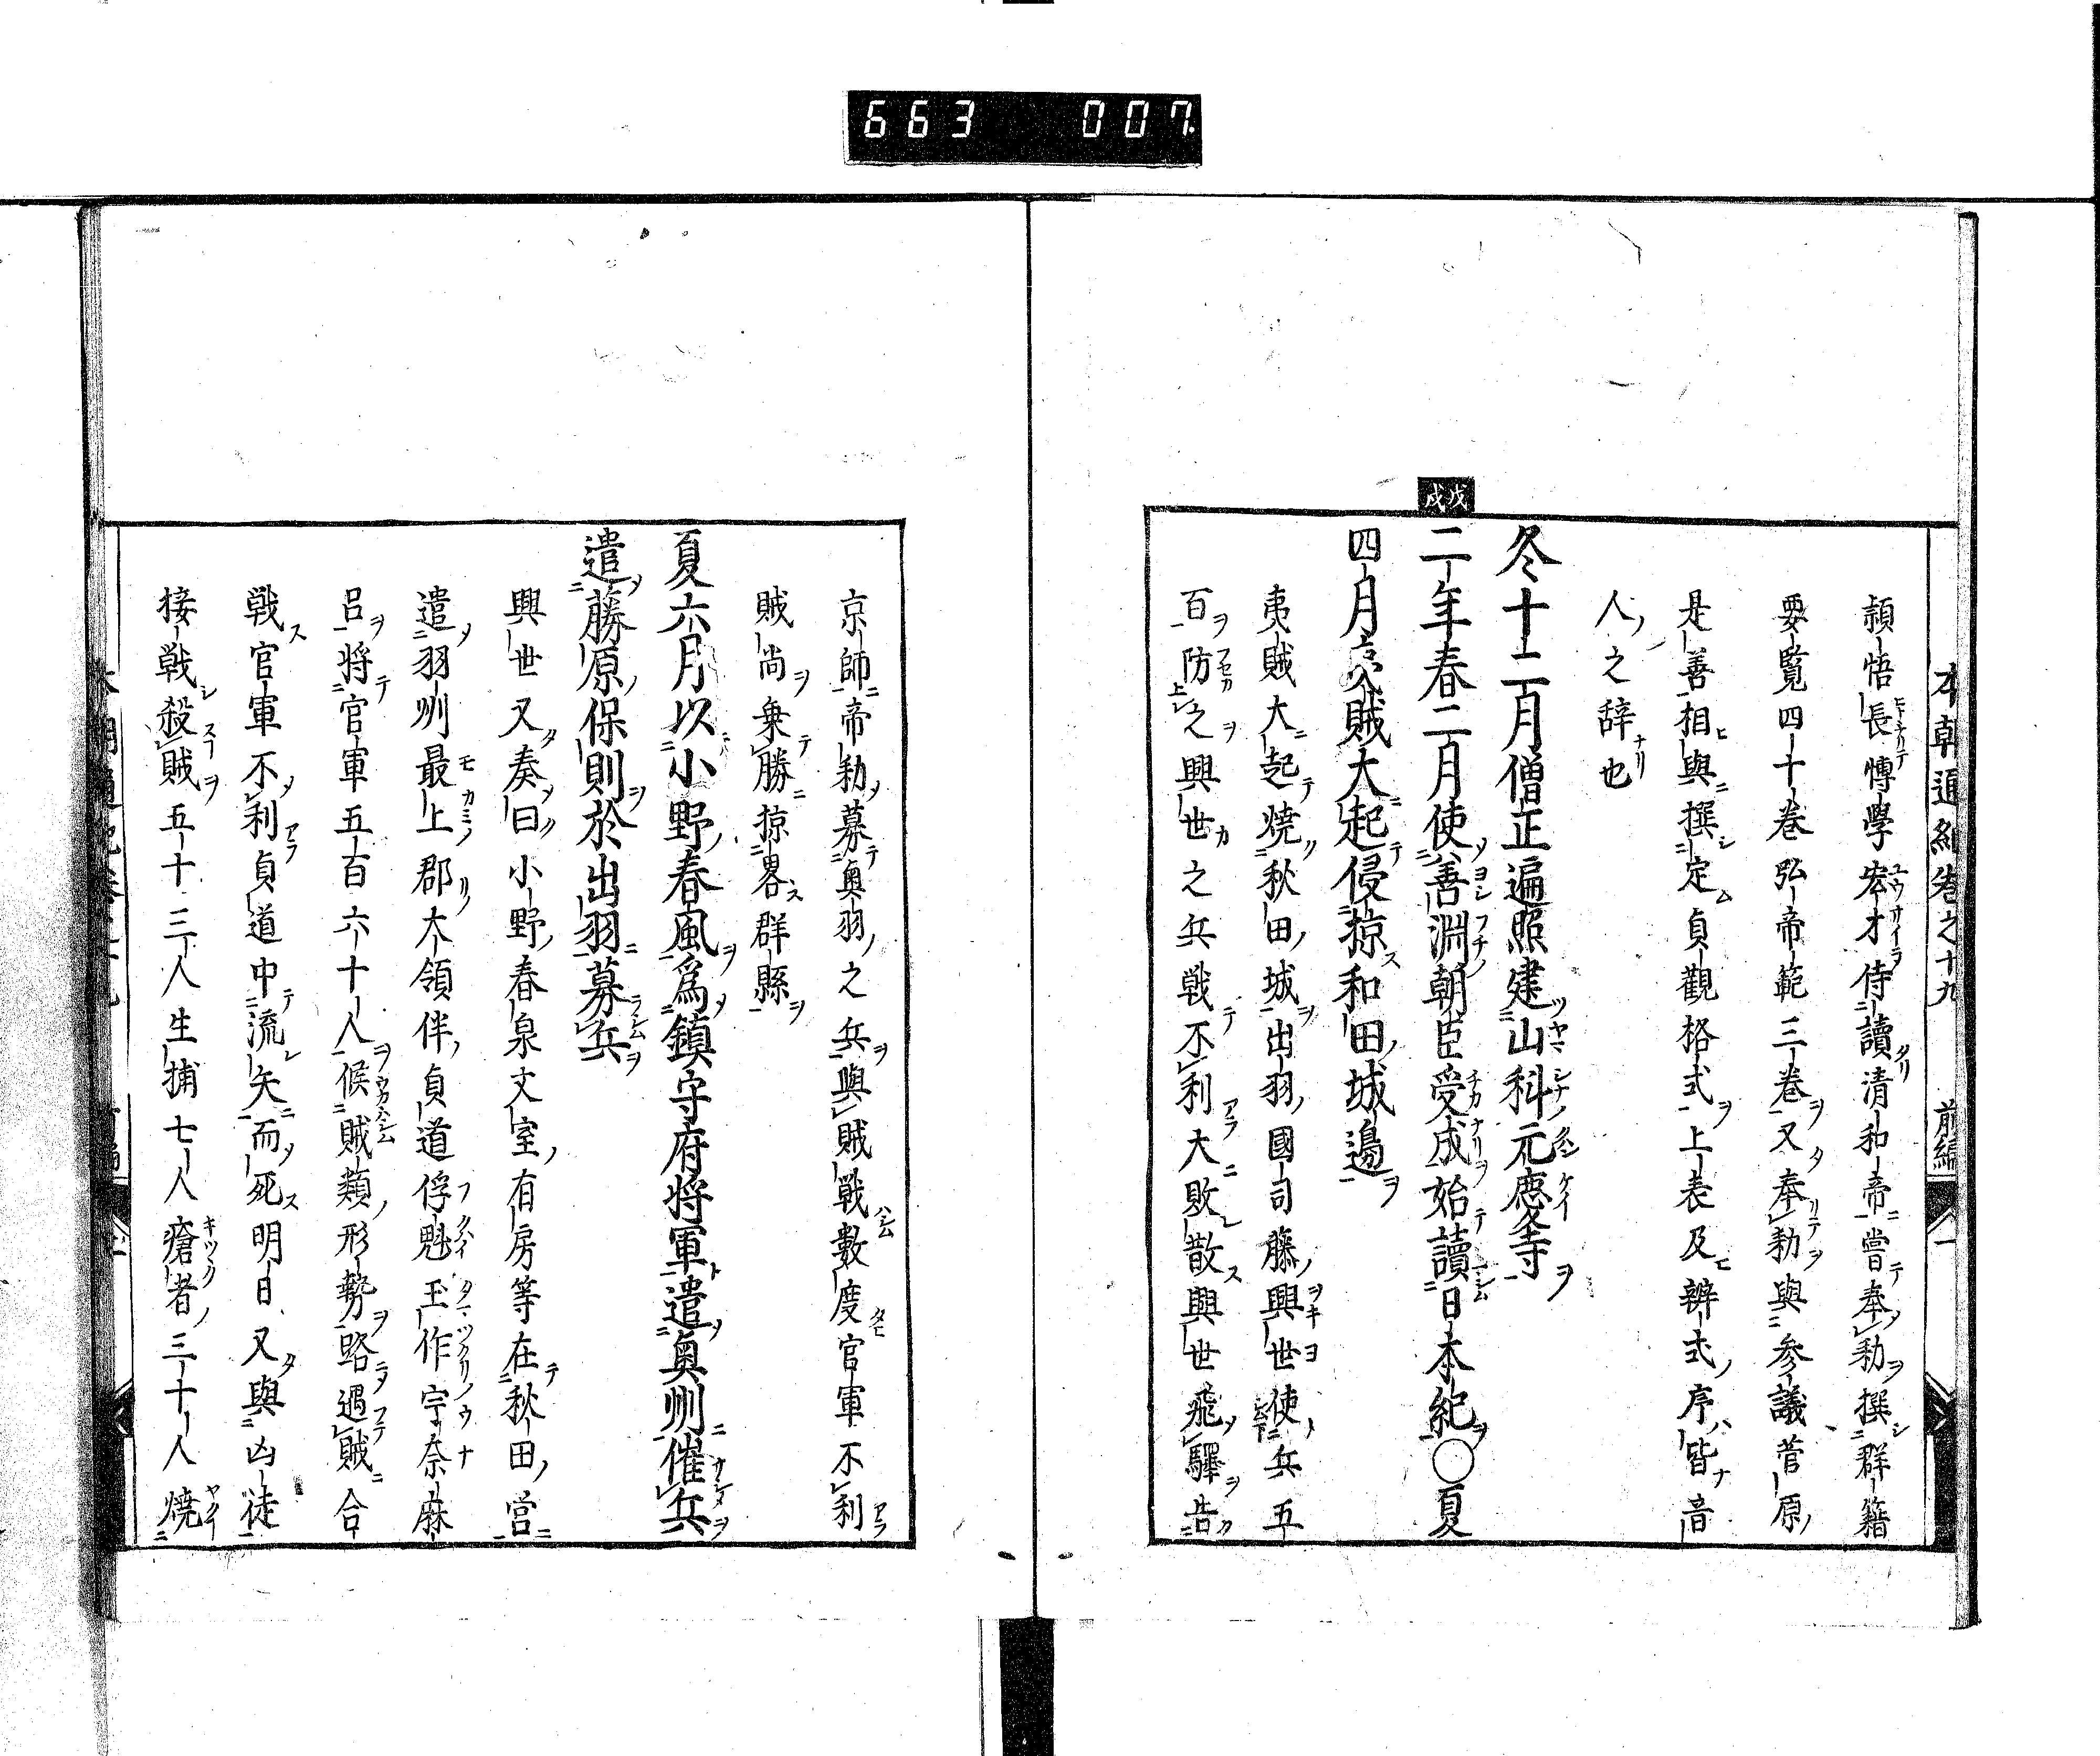 663 007
本朝通紀巻之十九 前編 一
頴悟長慱學宏才侍讀清和帝嘗奉勅撰群籍
要覧四十巻弘帝範三巻又奉勅與參議菅原
是善相與撰定貞觀格式上表及辨式序皆音
人之辞也
冬十二月僧正遍照建山科元慶寺
戊戌
二年春二月使善淵朝臣受成始讀日本紀○夏
四月 賊大起侵掠和田城邊
夷賊大起焼秋田城出羽國司藤興世使兵五
百防之興世之兵戦不利大敗散興世飛驛告
京師帝勅募奥羽之兵與賊戦數度官軍不利
賊尚乗勝掠畧群縣
夏六月以小野春風爲鎮守府将軍遣奥州催兵
遣藤原保則於出羽募兵
興世又奏曰小野春泉文室有房等在秋田営
遣羽州最上郡大領伴貞道俘魁玉作宇奈麻
呂将官軍五百六十人候賊類形勢路遇賊合
戦官軍不利貞道中流矢而死明日又與凶徒
接戦殺賊五十三人生捕七人瘡者三十人焼